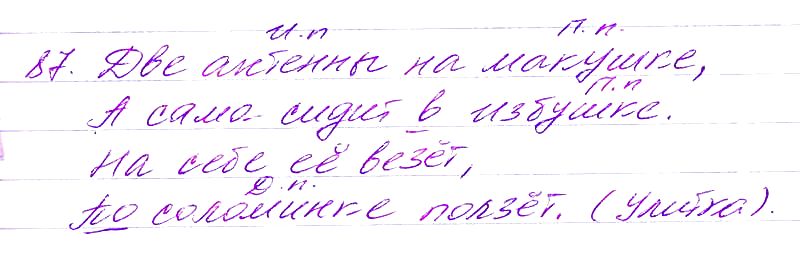 И.п П.п.
87. Две антенны на макушке,
П.п
А сама сидит в избушке.
На себе её везёт,
Д.п.
По соломинке ползёт. (Улитка).